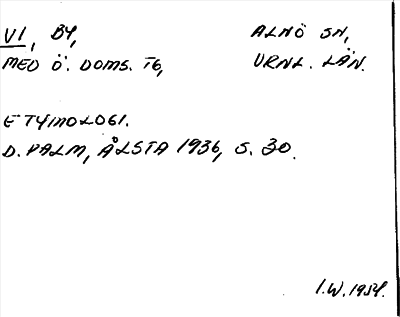 VI, BY, ALNÖ SN,
MED Ö. DOMS. TG, VRNL. LÄN.
ETYMOLOGI.
D. PALM, ÅLSTA 1936, S. 30.
I.W. 1954.